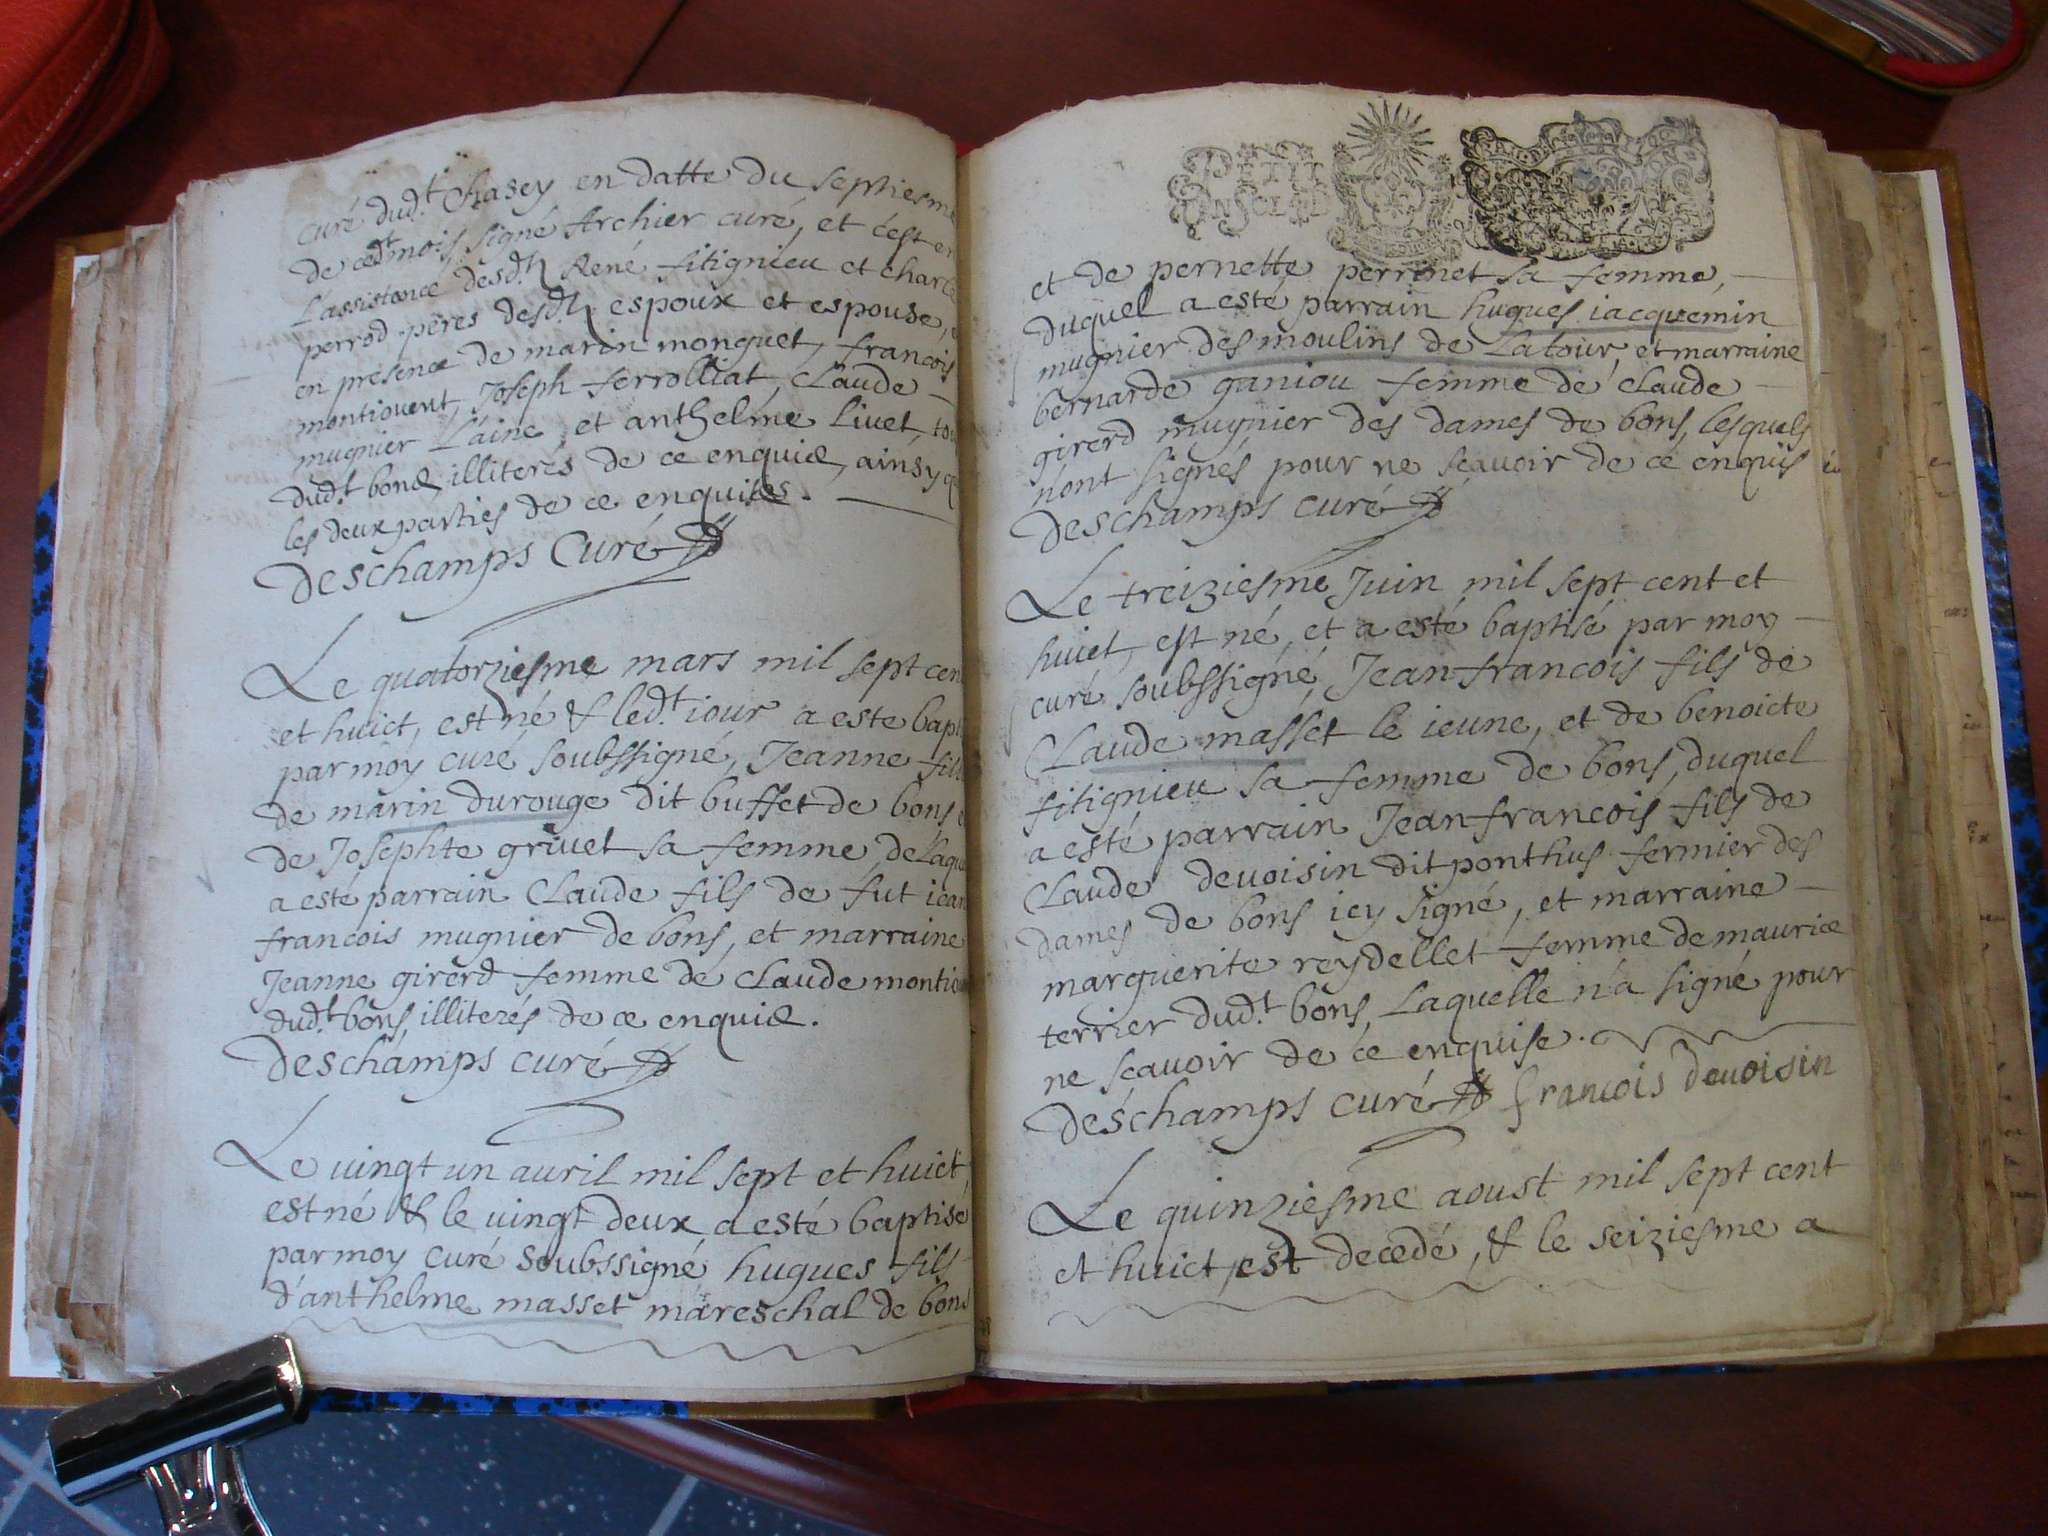 curé dud.t Chasey en datte du septiesme
de cedt mois signé Archier curé, et c'est en
L'assistance desd.ts René fitignieu et charle
perrod peres desd.ts espoux et espouse,
en presence de marin monguet, francois
montiouent, Joseph ferrolliat, Claude
mugnier L'ainé, et anthelme Livet, tou
dud.t bons, illiterés de ce enquis, ainsy q
les deux parties de ce enquites.
Deschamps Curé
Le quatorziesme mars mil sept cen
et huict, est né & led.t iour a esté bapt
par moy curé soubssigné, Jeanne fill
de marin durouge dit buffet de bons e
de Josephte grivet sa femme, de Laqu
a esté parrain Claude fils de fut iean
francois mugnier de bons, et marraine
Jeanne girerd femme de Claude montio
dud.t bons, illiterés de ce enquis.
Deschamps curé
Le vingt un avril mil sept et huict,
est né & le vingt deux a esté baptisé
par moy curé soubssigné hugues fils
d'anthelme masset mareschal de bons
PETIT
et de pernette perrinet sa femme,
duquel a esté parrain hugues iacquemin
mugnier des moulins de La tour, et marraine
bernarde ganiou femme de Claude
girerd mugnier des dames de bons, lesquels
n'ont signés pour ne scavoir de ce enquis
Deschamps curé
Le treiziesme Juin mil sept cent et
huict, est né, et a esté baptisé par moy
curé soubssigné, Jean francois fils de
Claude masset le ieune, et de benoicte
fitignieu sa femme de bons, duquel
a esté parrain Jean francois fils de
Claude devoisin dit ponthus fermier des
dames de bons icy signé, et marraine
marguerite reydellet femme de maurice
terrier dud.t bons, Laquelle n'a signé pour
ne scavoir de ce enquise.
Deschamps curé francois devoisin
Le quinziesme aoust mil sept cent
et huict, est decedé, & le seiziesme a